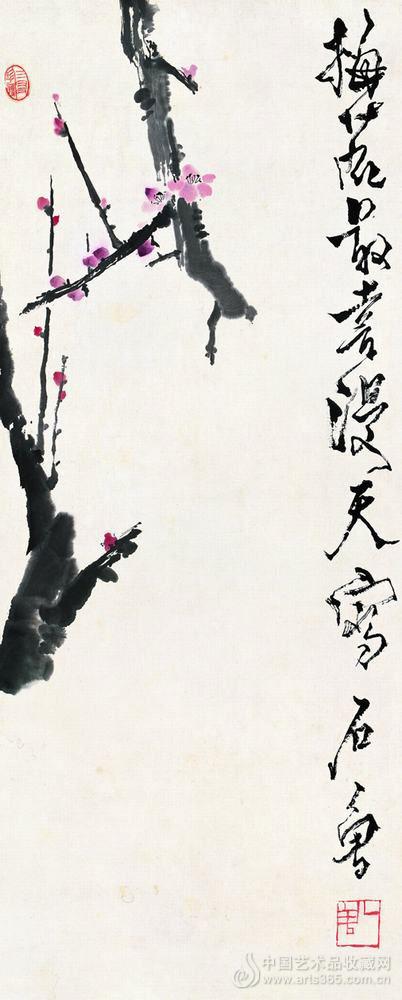 梅花最喜漫天雪 石魯
中国艺术品收藏网
www.arts365.com